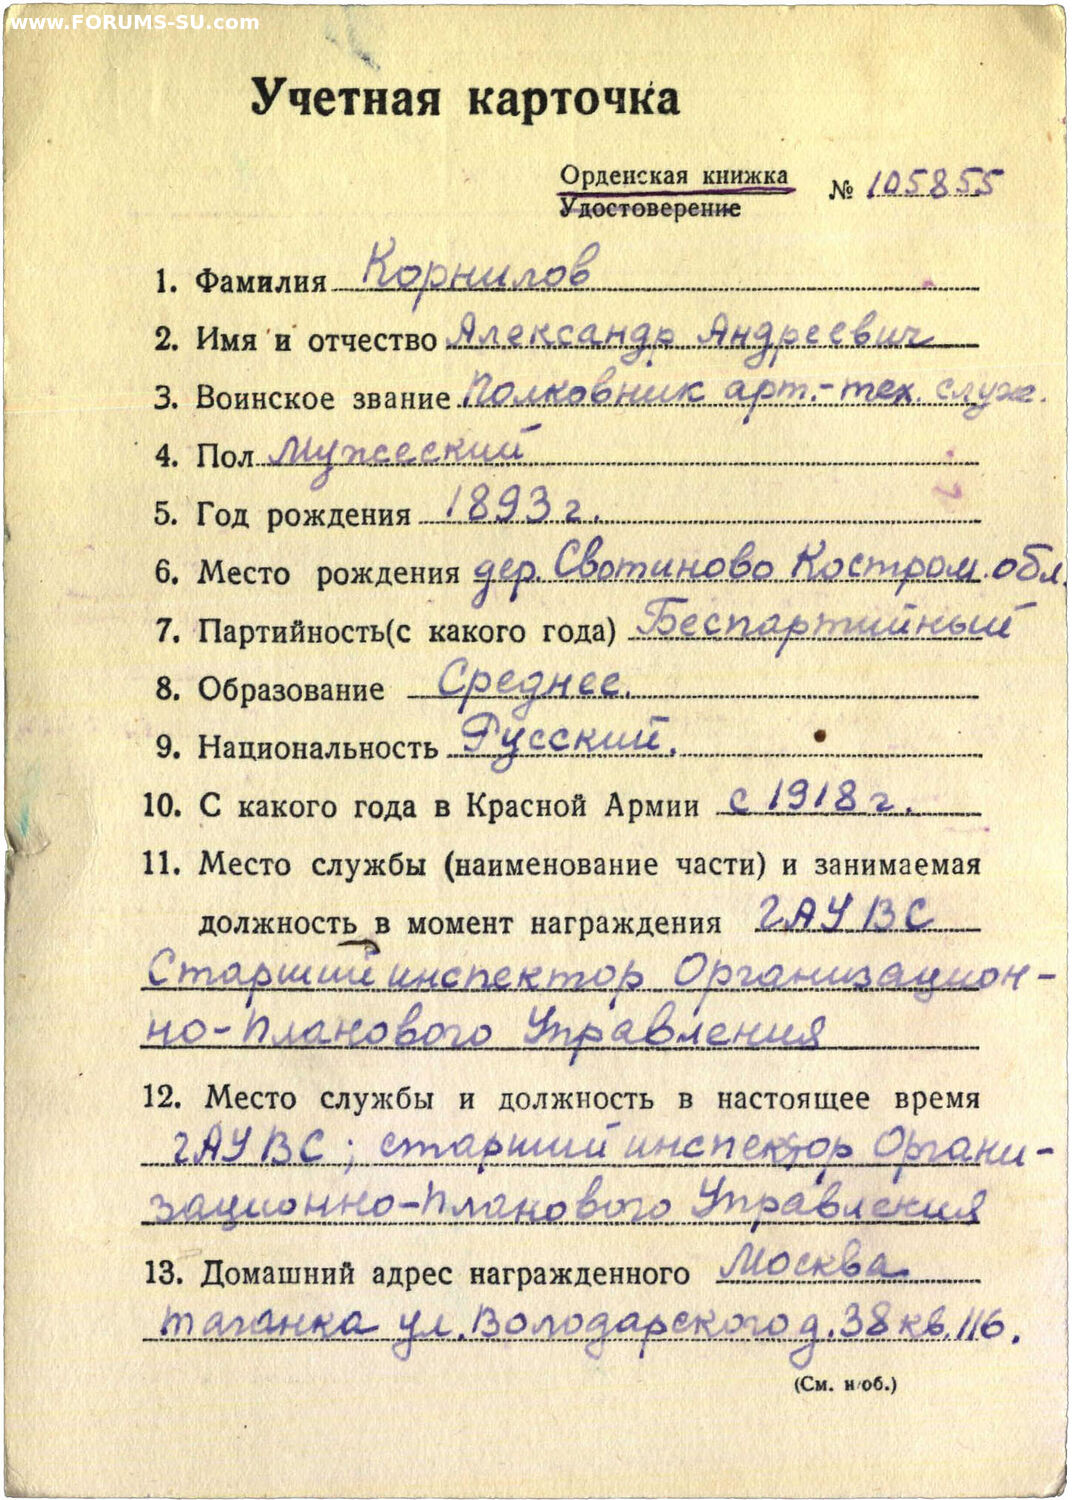 www.FORUMS-SU.com
Учетная карточка
Орденская книжка
Удостоверение
№ 105855
1. Фамилия Корнилов
2. Имя и отчество Александр Андреевич
3. Воинское звание Полковник арт.-тех. служ.
4. Пол Мужеский
5. Год рождения 1893 г.
6. Место рождения дер. Свотиново Костром. обл.
7. Партийность(с какого года) Беспартийный
8. Образование Среднее.
9. Национальность Русский.
10. С какого года в Красной Армии с 1918 г.
11. Место службы (наименование части) и занимаемая
должность в момент награждения ГАУ ВС
Старший инспектор Организацион-
но-Планового Управления
12. Место службы и должность в настоящее время
ГАУ ВС; старший инспектор Органи-
зационно-Планового Управления
13. Домашний адрес награжденного Москва
Таганка ул. Володарского д. 38 кв. 116.
(См. н/об.)